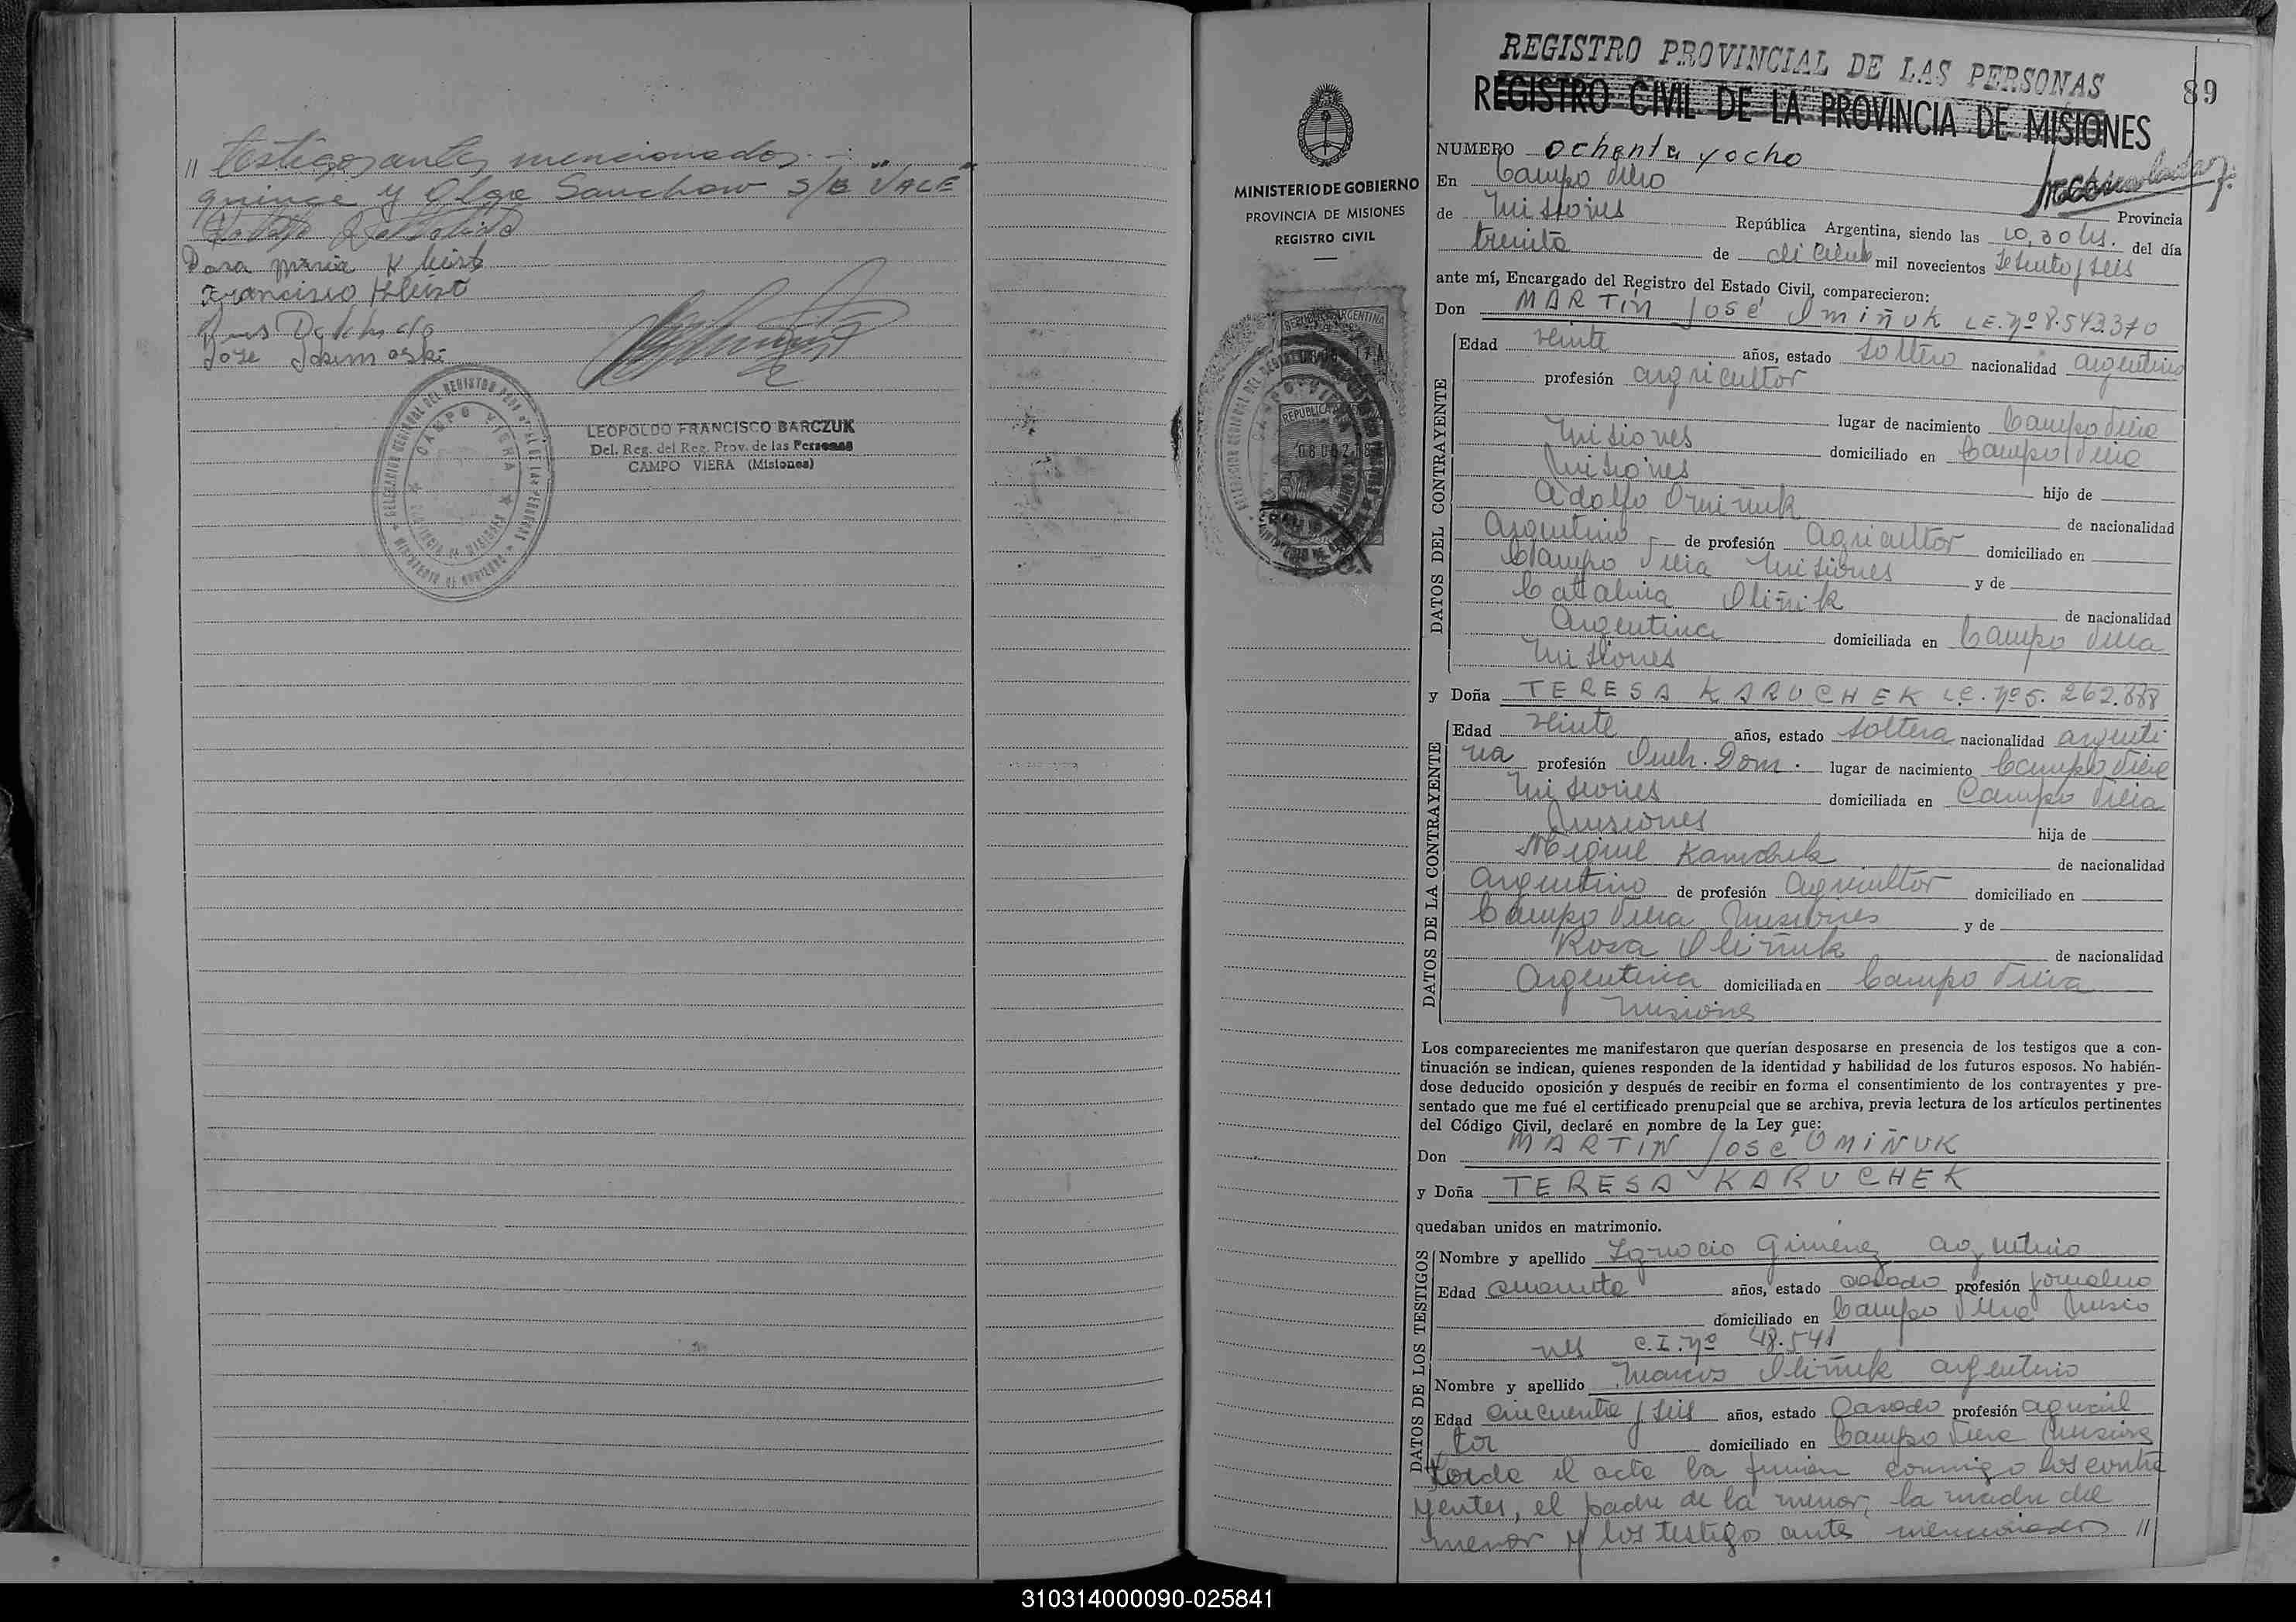 // testigos antes mencionados.-
quince y Olga S/B "VALE"
Rosa Maria K
Francisco
Jose
LEOPOLDO FRANCISCO BARCZUK
Del. Reg. del Reg. Prov. de las Personas
CAMPO VIERA (Misiones)
CAMPO VIERA
MINISTERIO DE GOBIERNO
PROVINCIA DE MISIONES
REGISTRO CIVIL
REPUBLICA ARGENTINA
REGISTRO PROVINCIAL DE LAS PERSONAS
89
REGISTRO CIVIL DE LA PROVINCIA DE MISIONES
NUMERO ochenta y ocho
En Campo Viera
de Misiones Provincia
República Argentina, siendo las 10,30 hs. del día
treinta de diciemb mil novecientos setenta y seis
ante mí, Encargado del Registro del Estado Civil, comparecieron:
Don MARTIN José OMIÑUK L.E. Nº 8.543.370
DATOS DEL CONTRAYENTE
Edad veinte años, estado soltero nacionalidad argentino
profesión agricultor
lugar de nacimiento Campo Viera
Misiones domiciliado en Campo Viera
Misiones
hijo de
Adolfo Omiñuk de nacionalidad
Argentino de profesión Agricultor domiciliado en
Campo Viera Misiones y de
Catalina Oliñik de nacionalidad
Argentina domiciliada en Campo Viera
Misiones
y Doña TERESA KARUCHEK L.C. Nº 5.262.888
DATOS DE LA CONTRAYENTE
Edad veinte años, estado soltera nacionalidad argenti
na profesión Dom. lugar de nacimiento Campo Viera
Misiones domiciliada en Campo Viera
Misiones hija de
Miguel Karuchek de nacionalidad
Argentino de profesión Agricultor domiciliado en
Campo Viera Misiones y de
Rosa Oliñuk de nacionalidad
Argentina domiciliada en Campo Viera
Misiones
Los comparecientes me manifestaron que querían desposarse en presencia de los testigos que a con-
tinuación se indican, quienes responden de la identidad y habilidad de los futuros esposos. No habién-
dose deducido oposición y después de recibir en forma el consentimiento de los contrayentes y pre-
sentado que me fué el certificado prenupcial que se archiva, previa lectura de los artículos pertinentes
del Código Civil, declaré en nombre de la Ley que:
Don MARTIN José OMIÑUK
y Doña TERESA KARUCHEK
quedaban unidos en matrimonio.
DATOS DE LOS TESTIGOS
Nombre y apellido Ignacio Gimenez argentino
Edad cuarenta años, estado casado profesión jornalero
domiciliado en Campo Viera Misio
nes C.I. Nº 48.541
Nombre y apellido Marcos Oliñuk argentino
Edad cincuenta y seis años, estado Casado profesión agricul
tor domiciliado en Campo Viera Misiones
Leida el acta la firman conmigo los contra
yentes, el padre de la menor, la madre del
menor y los testigos antes mencionados //
310314000090-025841